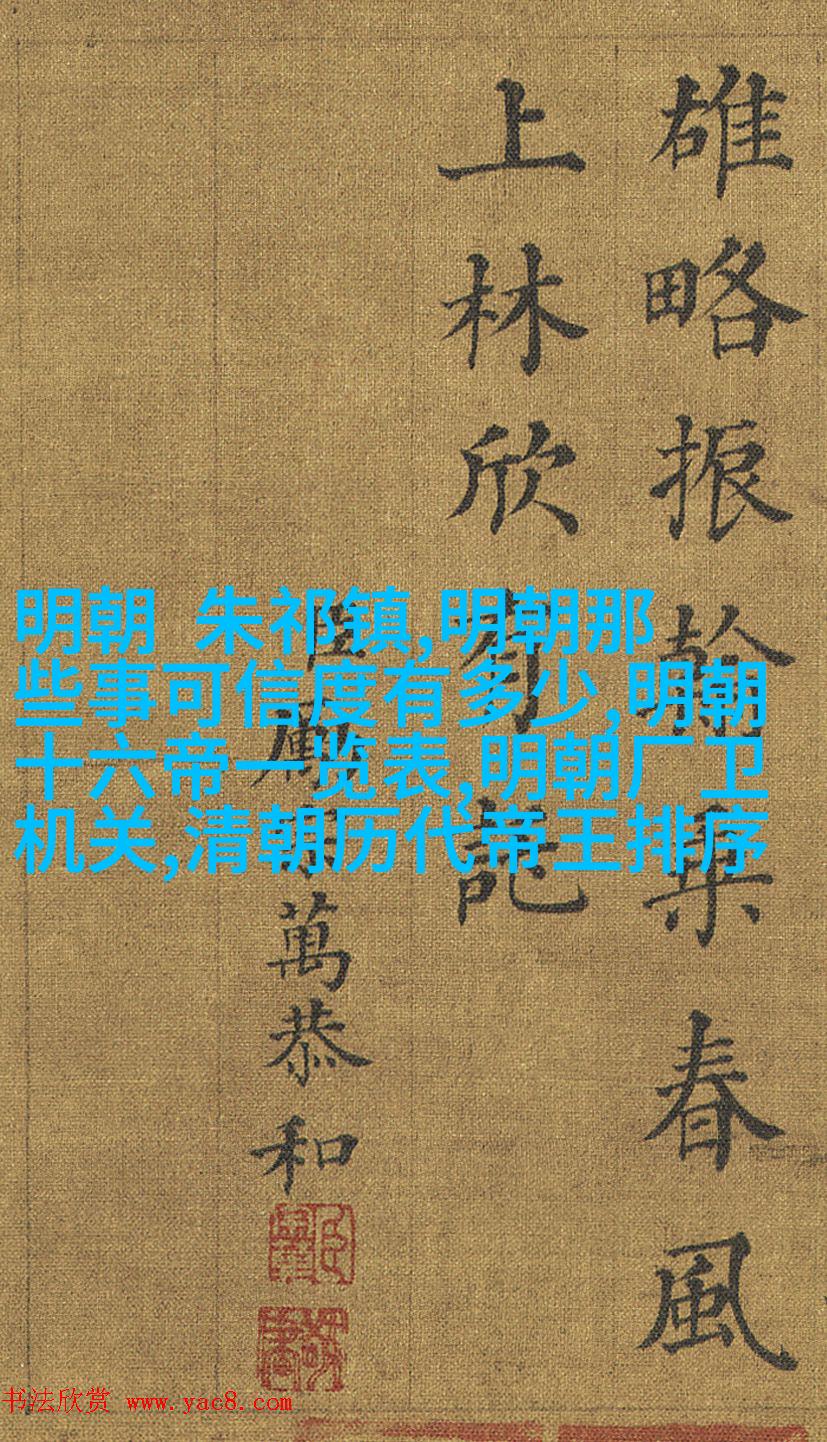 雄略振翰乗春風
上林欣有託
臣勵萬恭和
明朝 朱祁镇,明朝那
些事可信度有多少,明朝
十六帝一览表,明朝厂卫
机关,清朝历代帝王排序
书法欣赏 www.yac8.com